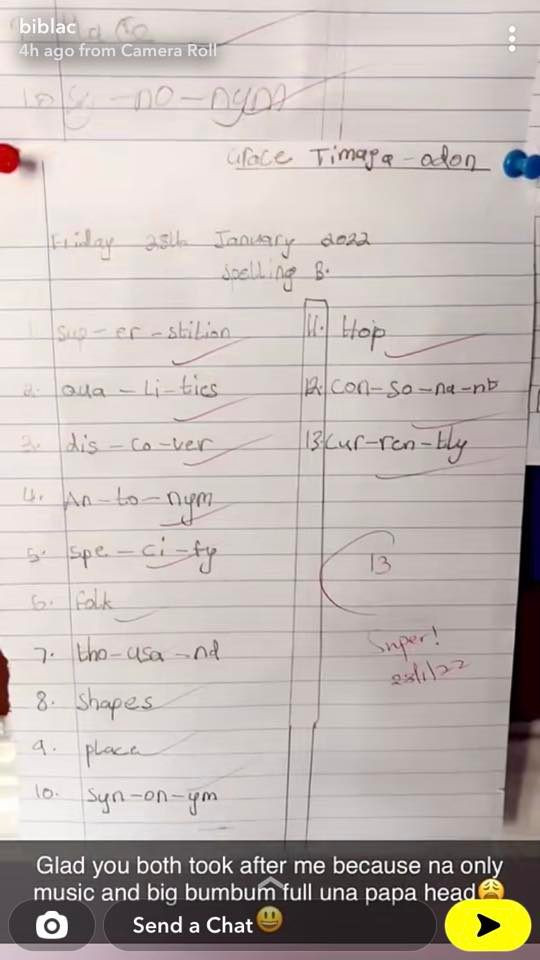 biblac
4h ago from Camera Roll
10 Sy-no-nym
Grace Timaya-odon
Friday 28th January 2022
Spelling B.
1. Sup-er-stition
2. qua-li-tics
3. dis-co-ver
4. An-to-nym
5. spe-ci-fy
6. folk
7. tho-usa-nd
8. shapes
9. place
10. syn-on-ym
11. Hop
12. con-so-na-nt
13 cur-ren-tly
13
Super!
28/1/22
Glad you both took after me because na only
music and big bumbum full una papa head😩
Send a Chat😃